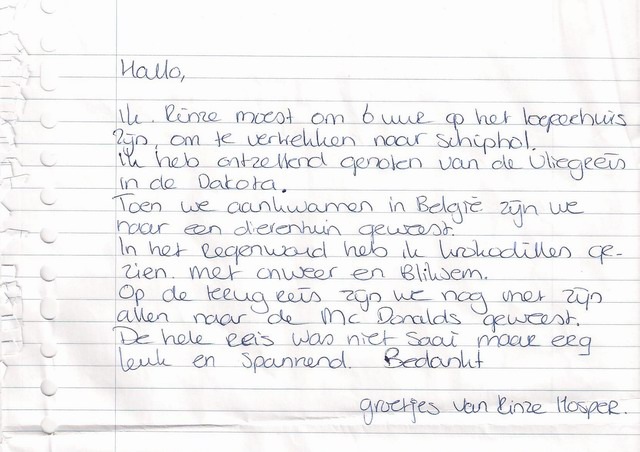 Hallo,
ik Rinze moest om 6 uur op het loopeehuis
zijn, om te vertrekken naar schiphol.
ik heb ontzettend genoten van de vliegreis
in de Dakota.
Toen we aankwamen in België zijn we
naar een dierentuin geweest.
In het Regenwoud heb ik krokodillen ge-
zien. met onweer en Bliksem.
Op de terug reis zijn we nog met zijn
allen naar de Mc Donalds geweest.
De hele reis was niet Saai maar erg
leuk en spannend. Bedankt
groetjes van Rinze Hosper.